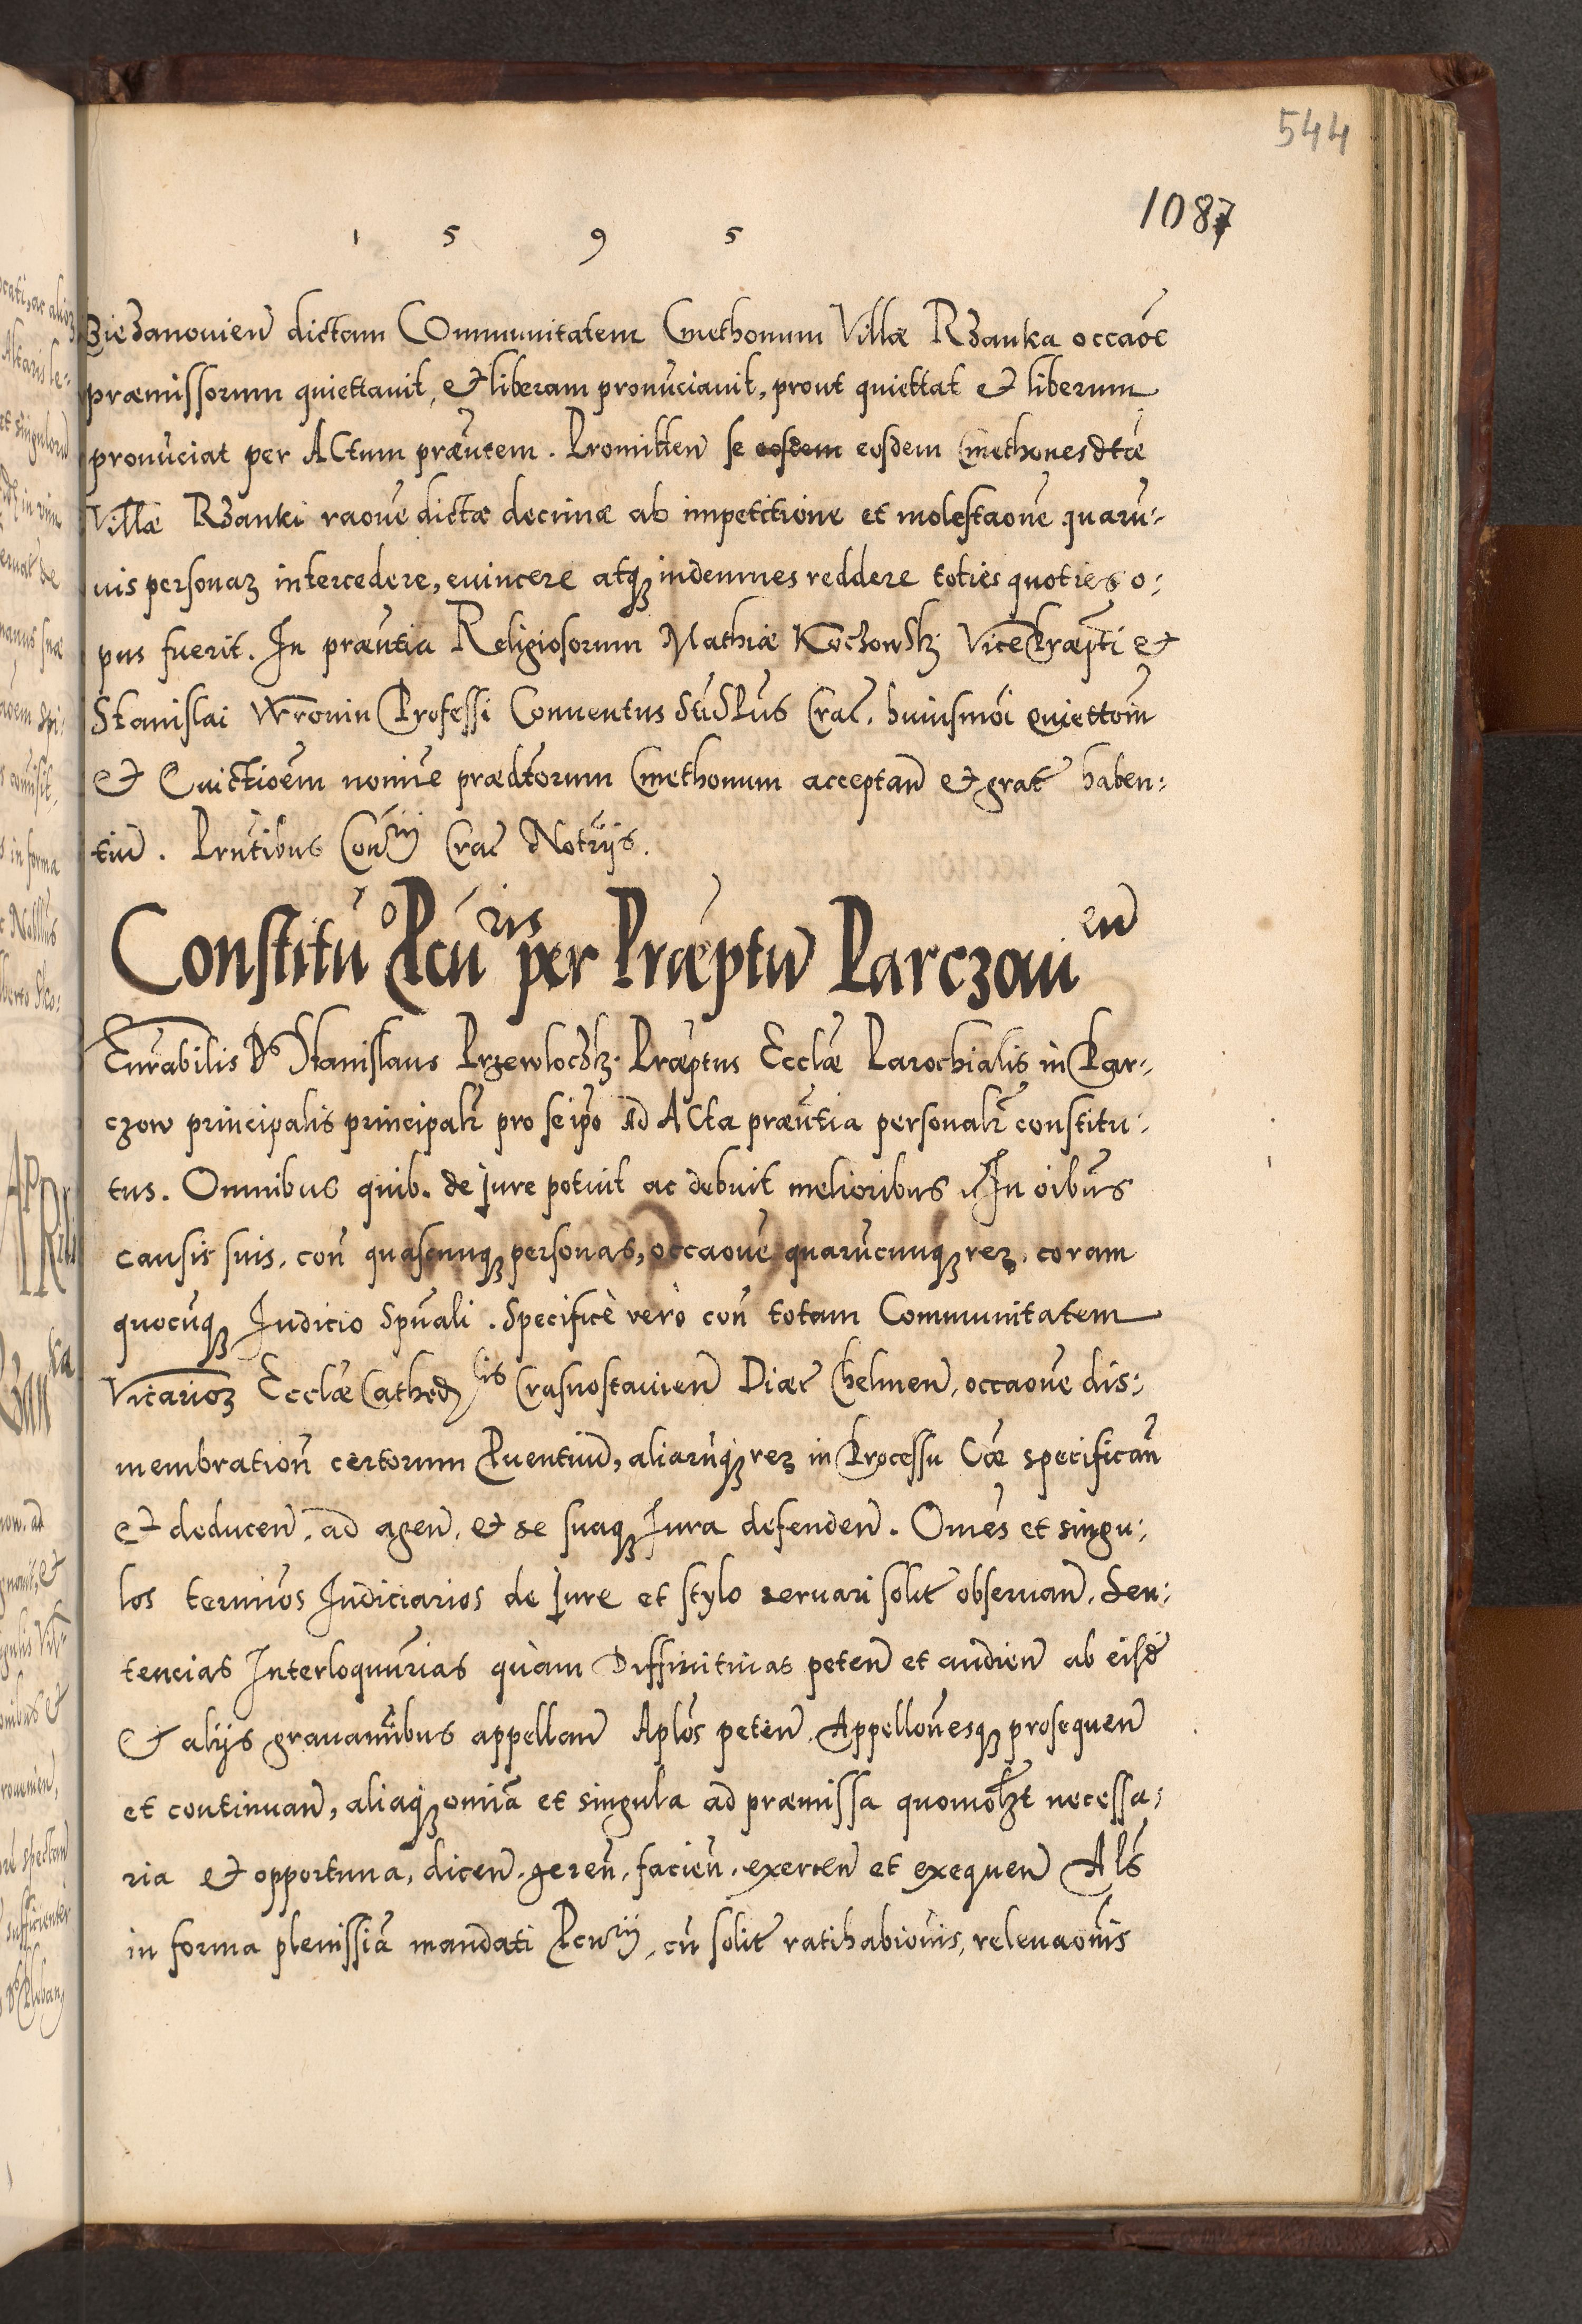 544
1087
1 5 9 5
Bieʒanouien̄ dictam Communitatem Cmethonum Villæ Rʒanka occaōe
præmissorum quiettauit, et liberam pronūciauit, prout quiettat et liberum
pronūciat per ACtum præūtem. Promitten̄ se eosdem eosdem Cmethones dtæ
Villæ Rʒanki raōne dictæ decimæ ab impetitione et molestaōne quarū-
uis personaꝝ intercedere, euincere atqꝫ indemnes reddere toties quoties o:
pus fuerit. In præūtia Religiosorum Mathiæ Koczowskꝫ Vice Præpti et
Stanislai Wronin Professi Conuentus Sti Spūs Crac. huiusmōi quiettōīn
et Euictioēm nomīe prædtorum Cmethonum acceptan̄ et grat haben:
tiū. Prn̄tibus Con̄rij Crac Notrijs.
Constitūo Pcūris per Præptū Parczouien̄
Enrabilis Ds Stanislaus Przewlockꝫ. Præptus Ecclæ Parochialis in Par-
czow principalis principalr̄ pro se ip̄o Ad ACta præūtia personalr̄ constitu:
tus. Omnibus quib. de Jure potuit ac debuit melioribus In oībus
causis suis, con̄ quascunqꝫ personas, occaōne quarūcunqꝫ reꝝ. coram
quocūqꝫ Judicio Spūali. Specificè verò con̄ totam Communitatem
Vicarioꝝ Ecclæ Cathedlis Crasnostauien̄ Diæc Chelmen̄, occaōne dis:
membration̄ certorum Puentiū, aliarūqꝫ reꝝ in Processu Cæ specifican̄
et deducen̄. ad agen̄. et se suaqꝫ Jura defenden̄. Om̄es et singu:
los termīos Judiciarios de Jure et stylo seruari solit obseruan̄. Sen:
tencias Interloqūrias quàm Diffinitiuas peten̄ et audien̄ ab eisd̄
et alijs grauamībus appellan̄ Aplōs peten̄. Appellōnesqꝫ prosequen̄
et continuan̄, aliaqꝫ omīa et singula ad præmissa quomōlꝫt necessa:
ria et opportuna, dicen̄. geren̄. facien̄. exercen̄ et exequen̄ Als̄
in forma plenissīa mandati Pcurij, cū solit ratihabiōnis, releuaōnis